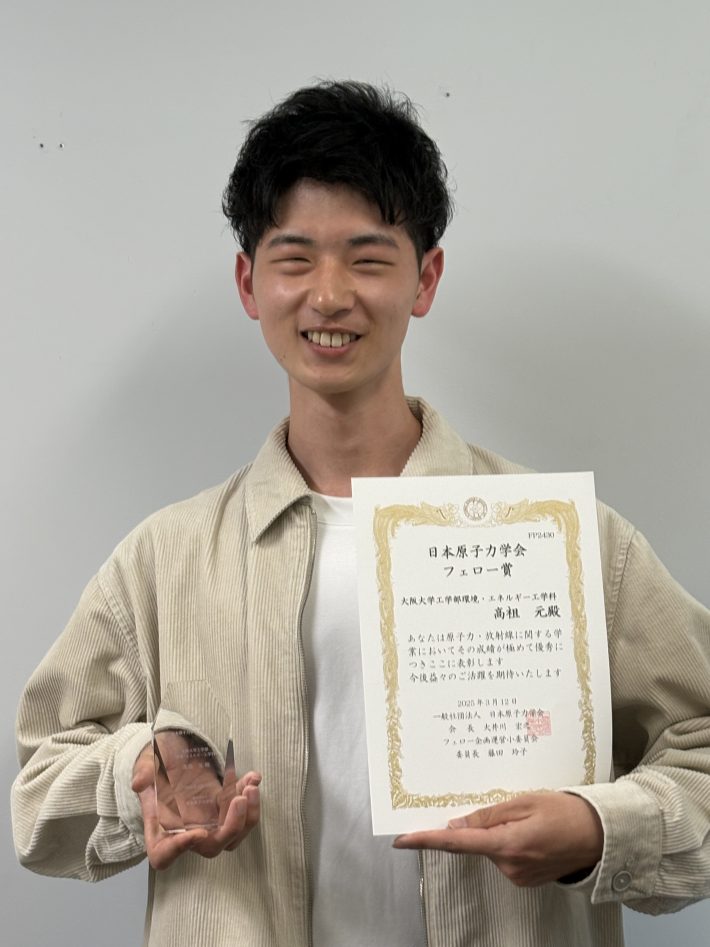 FP2430
日本原子力学会
フェロー賞
大阪大学工学部環境・エネルギー工学科
高祖 元殿
あなたは原子力・放射線に関する学
業においてその成績が極めて優秀に
つきここに表彰します
今後益々のご活躍を期待いたします
2025年3月12日
一般社団法人 日本原子力学会
会 長 大井川 宏之
フェロー企画運営小委員会
委員長 藤田 玲子